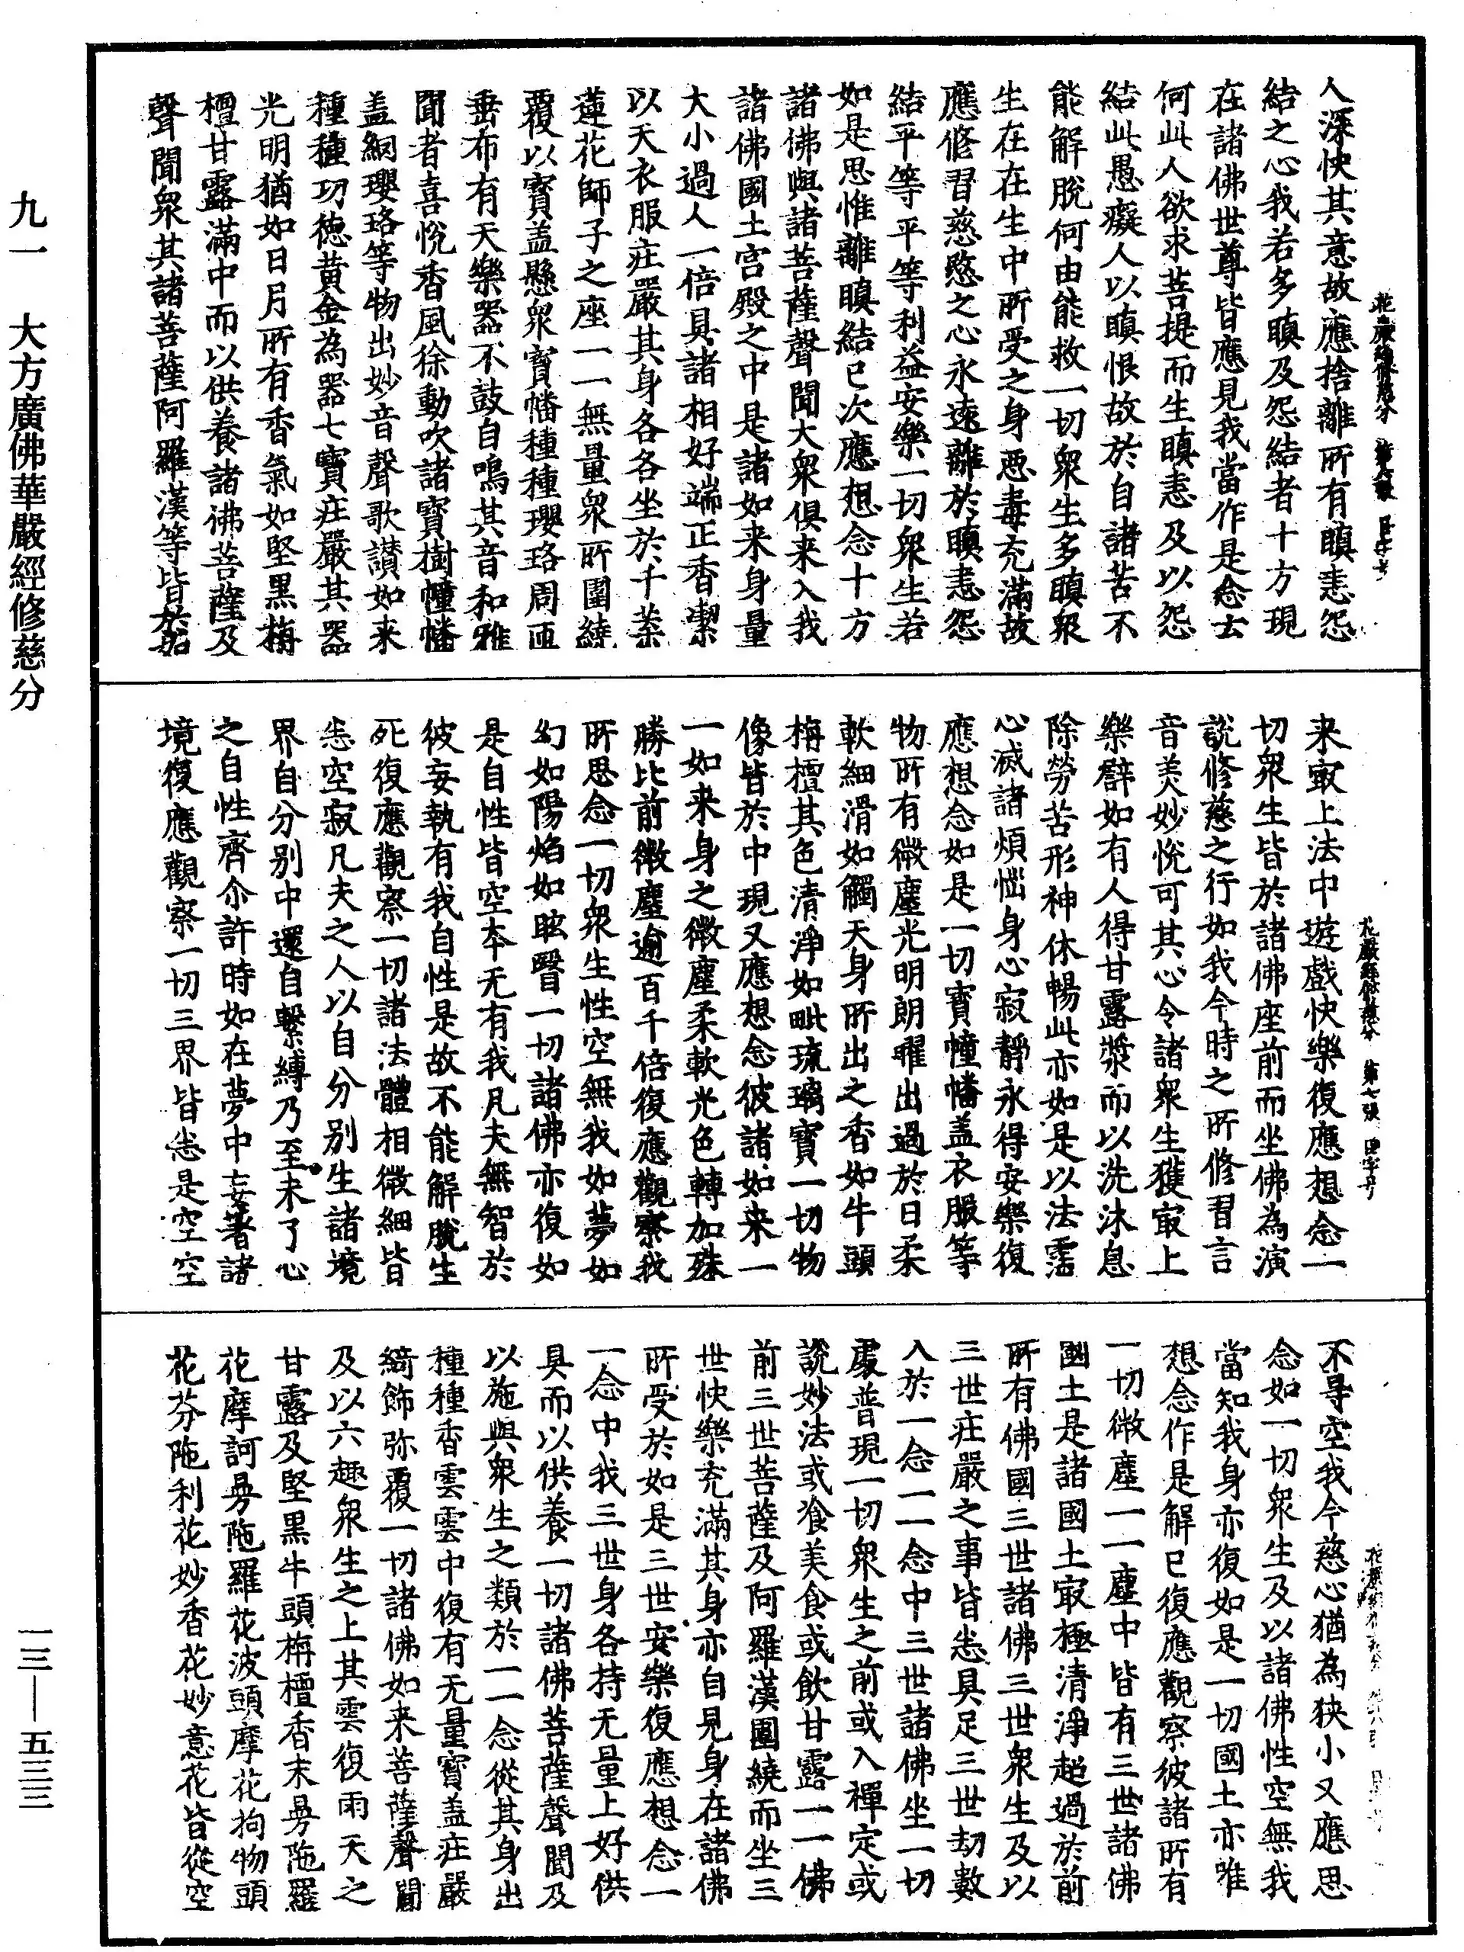 人深快其意故應捨離所有瞋恚怨
結之心我若多瞋及怨結者十方現
在諸佛世尊皆應見我當作是念云
何此人欲求菩提而生瞋恚及以怨
結此愚癡人以瞋恨故於自諸苦不
能解脫何由能救一切衆生多瞋衆
生在在生中所受之身惡毒充滿故
應修習慈愍之心永遠離於瞋恚怨
結平等平等利益安樂一切衆生若
如是思惟離瞋結已次應想念十方
諸佛與諸菩薩聲聞大衆俱来入我
諸佛國土宫殿之中是諸如来身量
大小過人一倍具諸相好端正香潔
以天衣服莊嚴其身各各坐於千葉
蓮花師子之座一一無量衆所圍繞
覆以寶盖懸衆寶幡種種瓔珞周匝
垂布有天樂器不鼓自鳴其音和雅
聞者喜悅香風徐動吹諸寶樹幢幡
盖網瓔珞等物出妙音聲歌讃如来
種種功德黄金為器七寶莊嚴其器
光明猶如日月所有香氣如堅黑栴
檀甘露滿中而以供養諸佛菩薩及
聲聞衆其諸菩薩阿羅漢等皆於如
来㝡上法中遊戲快樂復應想念一
切衆生皆於諸佛座前而坐佛為演
說修慈之行如我今時之所修習言
音美妙悅可其心令諸衆生獲㝡上
樂譬如有人得甘露漿而以洗沐息
除勞苦形神休暢此亦如是以法霑
心滅諸煩惱身心寂靜永得安樂復
應想念如是一切寶幢幡盖衣服等
物所有微塵光明朗曜出過於日柔
軟細滑如觸天身所出之香如牛頭
栴檀其色清淨如毗琉璃寶一切物
像皆於中現又應想念彼諸如来一
一如来身之微塵柔軟光色轉加殊
勝比前微塵逾百千倍復應觀察我
所思念一切衆生性空無我如夢如
幻如陽焰如眩瞖一切諸佛亦復如
是自性皆空本无有我凡夫無智於
彼妄執有我自性是故不能解脫生
死復應觀察一切諸法體相微細皆
悉空寂凡夫之人以自分別生諸境
界自分別中還自繫縛乃至未了心
之自性齊尒許時如在夢中妄著諸
境復應觀察一切三界皆悉是空空
不㝵空我今慈心猶為狹小又應思
念如一切衆生及以諸佛性空無我
當知我身亦復如是一切國土亦唯
想念作是解已復應觀察彼諸所有
一切微塵一一塵中皆有三世諸佛
國土是諸國土㝡極清淨超過於前
所有佛國三世諸佛三世衆生及以
三世莊嚴之事皆悉具足三世劫數
入於一念一一念中三世諸佛坐一切
處普現一切衆生之前或入禪定或
說妙法或飡美食或飲甘露一一佛
前三世菩薩及阿羅漢圍繞而坐三
世快樂充滿其身亦自見身在諸佛
所受於如是三世安樂復應想念一
一念中我三世身各持无量上好供
具而以供養一切諸佛菩薩聲聞及
以施與衆生之類於一一念從其身出
種種香雲雲中復有无量寶盖莊嚴
綺飾弥覆一切諸佛如来菩薩聲聞
及以六趣衆生之上其雲復雨天之
甘露及堅黒牛頭栴檀香末曼陁羅
花摩訶曼陁羅花波頭摩花拘物頭
花芬陁利花妙香花妙意花皆從空
花嚴經修慈分 第六張
花嚴經修慈分 第七張
九一 大方廣佛華嚴經修慈分
一三—五三三